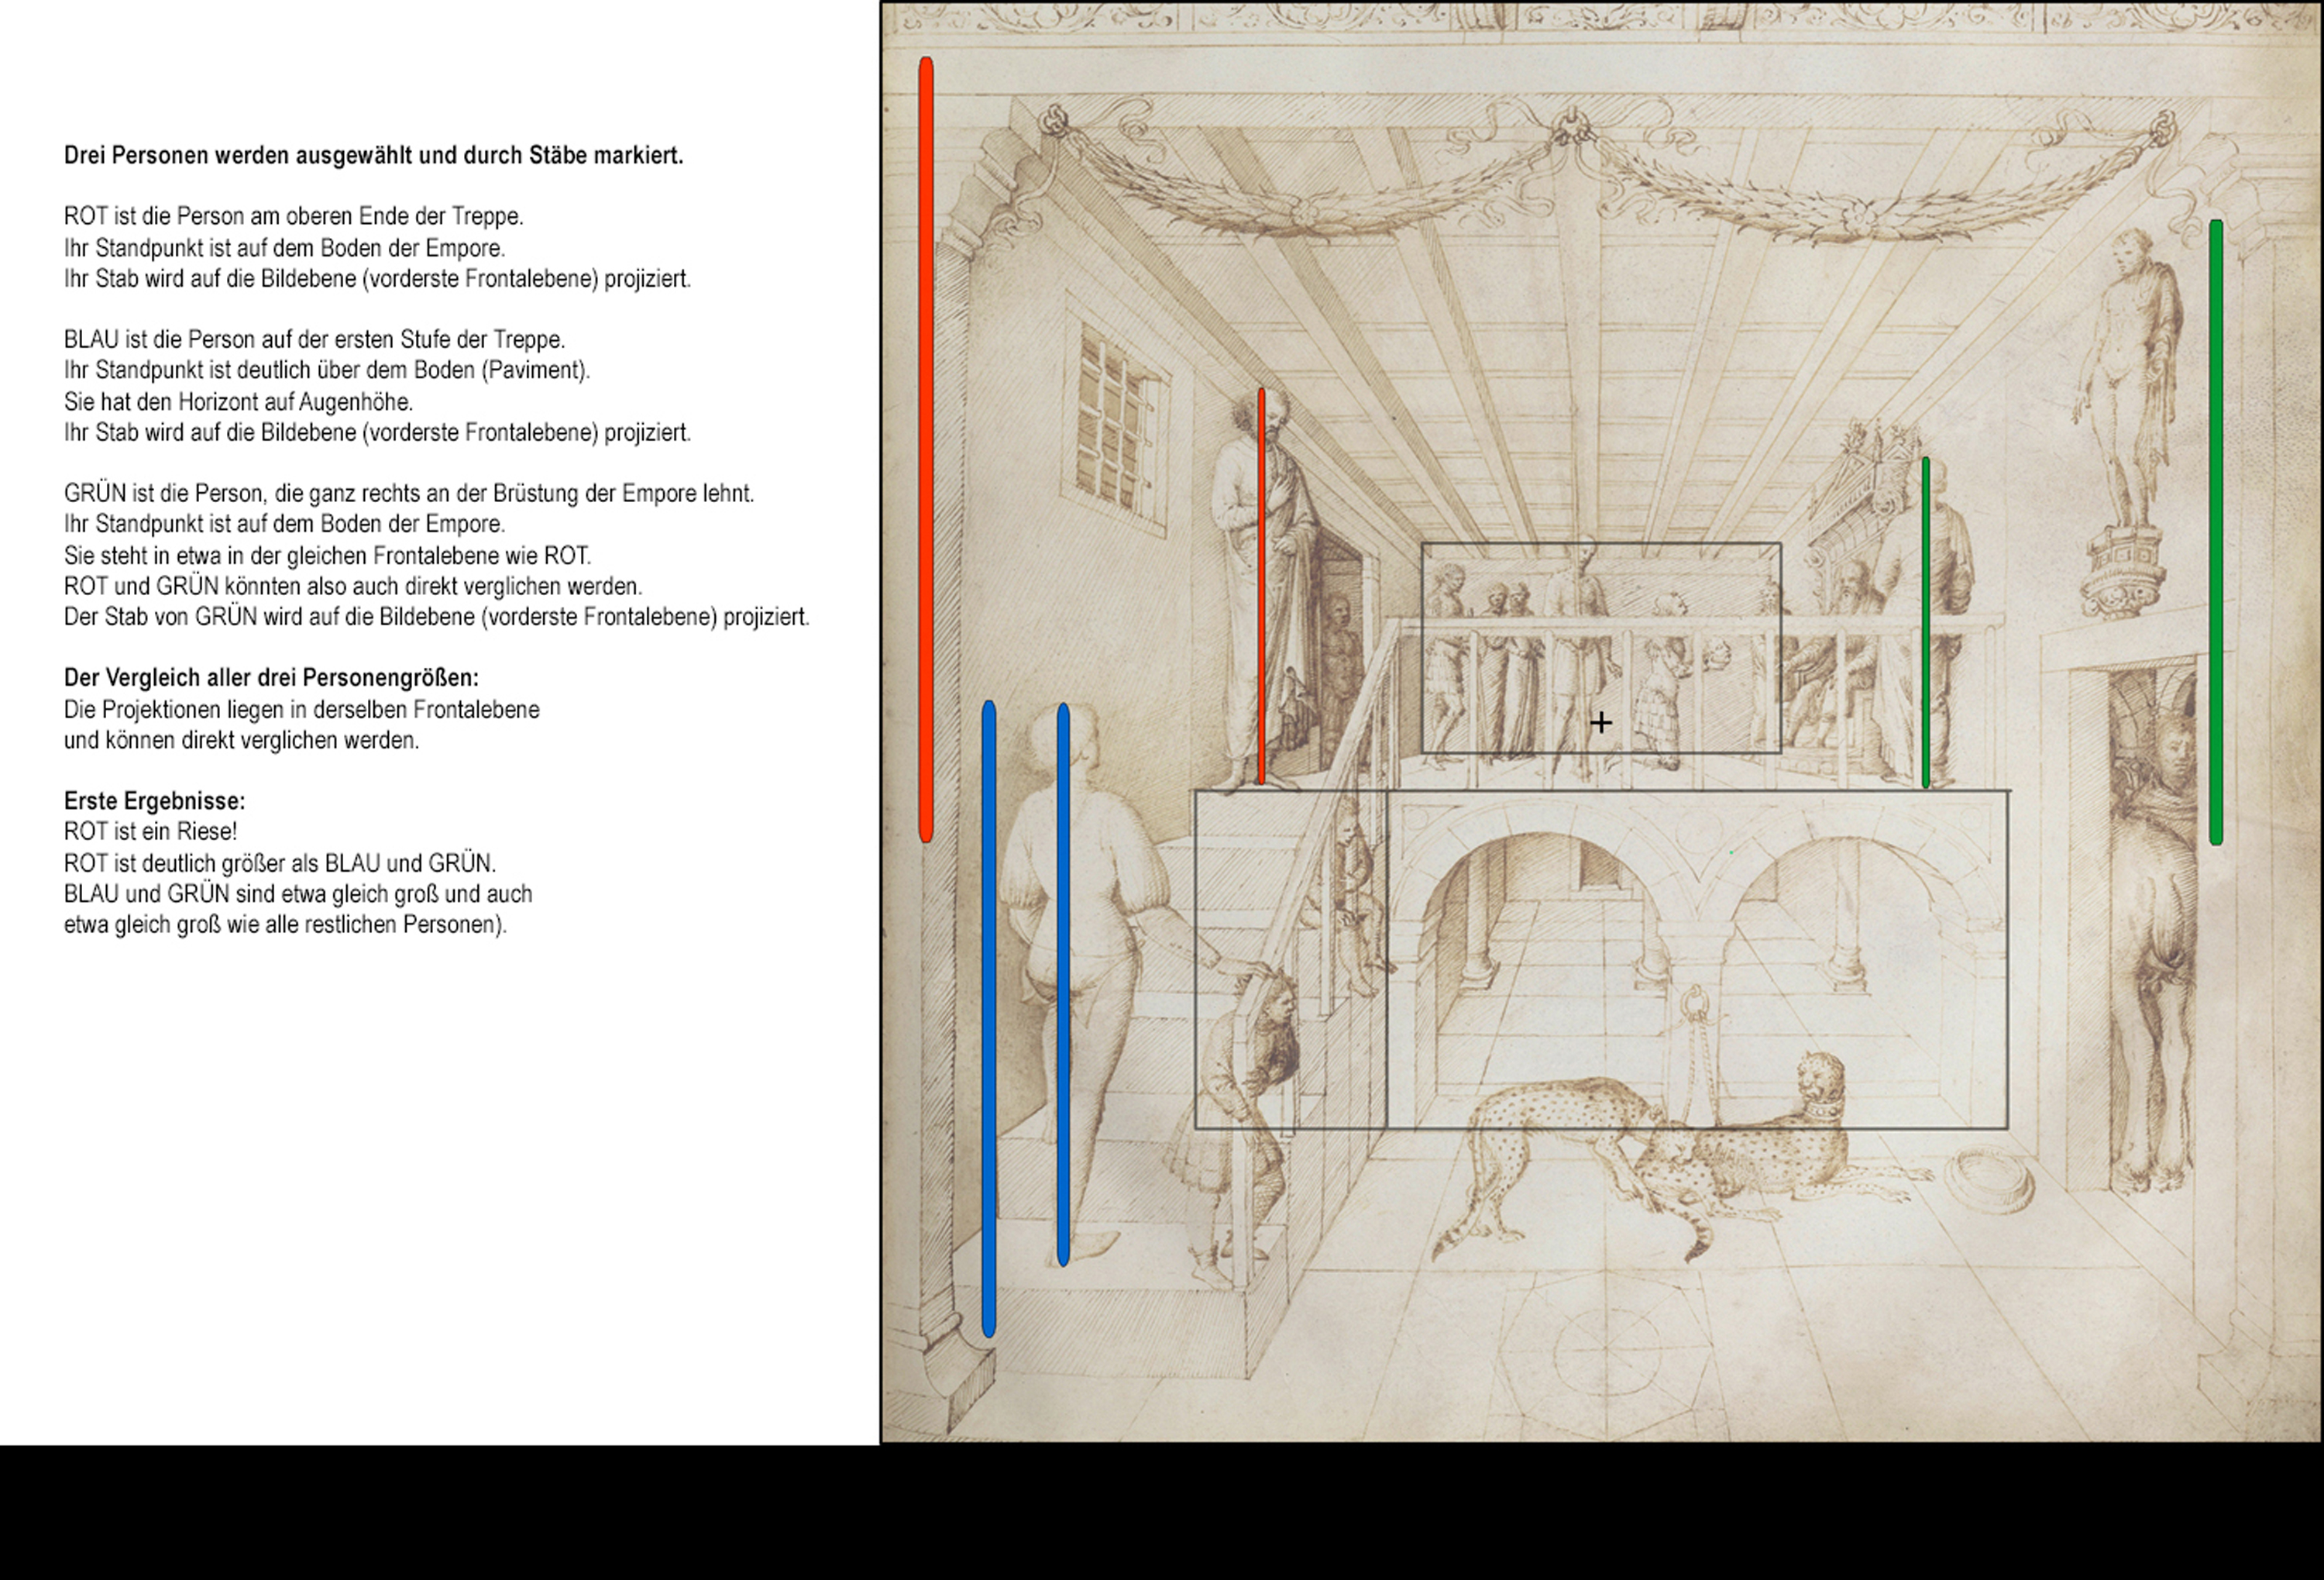 Drei Personen werden ausgewählt und durch Stäbe markiert.
ROT ist die Person am oberen Ende der Treppe.
Ihr Standpunkt ist auf dem Boden der Empore.
Ihr Stab wird auf die Bildebene (vorderste Frontalebene) projiziert.
BLAU ist die Person auf der ersten Stufe der Treppe.
Ihr Standpunkt ist deutlich über dem Boden (Paviment).
Sie hat den Horizont auf Augenhöhe.
Ihr Stab wird auf die Bildebene (vorderste Frontalebene) projiziert.
GRÜN ist die Person, die ganz rechts an der Brüstung der Empore lehnt.
Ihr Standpunkt ist auf dem Boden der Empore.
Sie steht in etwa in der gleichen Frontalebene wie ROT.
ROT und GRÜN könnten also auch direkt verglichen werden.
Der Stab von GRÜN wird auf die Bildebene (vorderste Frontalebene) projiziert.
Der Vergleich aller drei Personengrößen:
Die Projektionen liegen in derselben Frontalebene
und können direkt verglichen werden.
Erste Ergebnisse:
ROT ist ein Riese!
ROT ist deutlich größer als BLAU und GRÜN.
BLAU und GRÜN sind etwa gleich groß und auch
etwa gleich groß wie alle restlichen Personen).